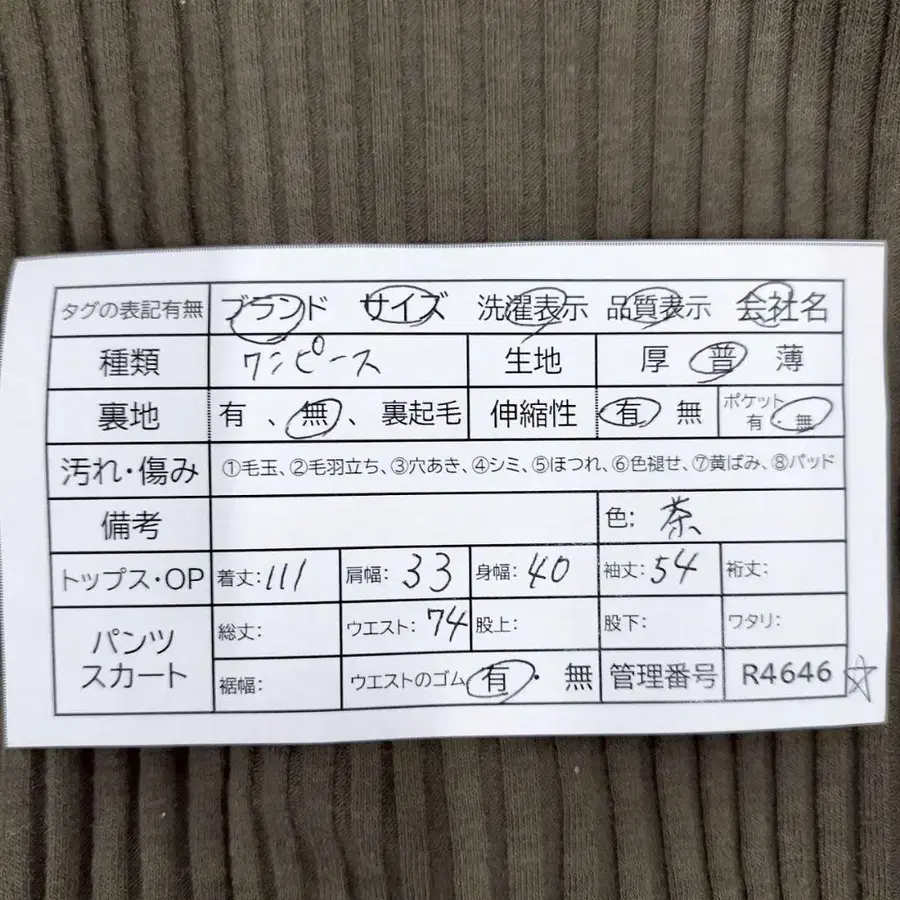 タグの表記有無 ブランド サイズ 洗濯表示 品質表示 会社名
種類 ワンピース 生地 厚 普 薄
裏地 有 、無 、裏起毛 伸縮性 有 無 ポケット 有・無
汚れ・傷み ①毛玉、②毛羽立ち、③穴あき、④シミ、⑤ほつれ、⑥色褪せ、⑦黄ばみ、⑧パッド
備考 色: 茶
トップス・OP 着丈:111 肩幅: 33 身幅: 40 袖丈:54 裄丈:
パンツ スカート 総丈: ウエスト: 74 股上: 股下: ワタリ:
裾幅: ウエストのゴム 有・無 管理番号 R4646